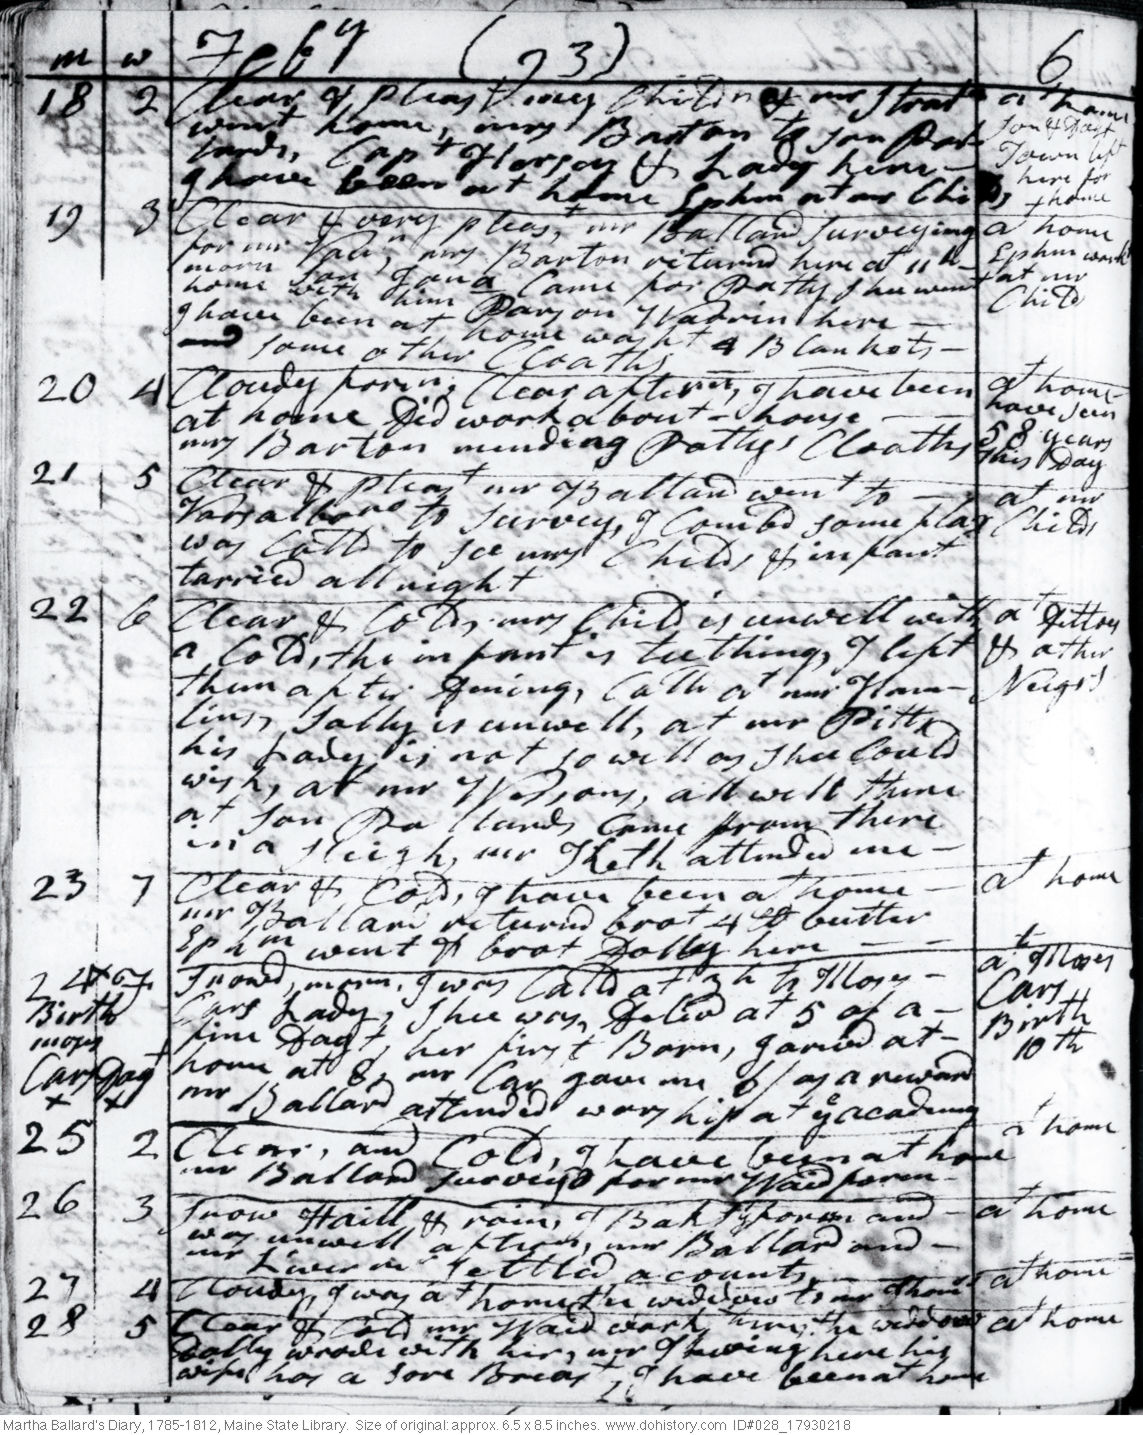 m w Feby (93) 6
18 2 Clear & pleast my Childn & mr
went home, mrs Barton to Son
lards, Capt Hersey & Lady here -
I have been at home Ephm at mr Childs
at home
Son & Dagt
Town left
here for
home
19 3 Clear & very pleast, mr Ballard Surveying
for mr mrs Barton returnd here at 11 h
morn Son Jona Came for Patty Shee went
home with him Parson Warrin here -
I have been at home washt 4 Blankets -
and some other Cloaths
a home
Ephm workt
at mr
Childs
20 4 Cloudy foren, Clear aftern, I have been
at home Did work about house
mrs Barton mending Pattys Cloaths
at home
have seen
58 years
this Day
21 5 Clear & pleast mr Ballard went to -
Varsalboro to Survey, I Combd some flax
was Calld to see mrs Childs & infant
tarried all night
at mr
Childs
22 6 Clear & Cold, mrs Child is unwell with
a Cold, the infant is teething, I left
them after Dining, Calld at mr Ham-
lins, Sally is unwell, at mr Pitts
his Lady is not so well as shee Could
wish, at mr Wessons, all well there
at Son Pollards Came from there
in a Sleigh, mr attended me -
at Pittses
& other
Neigs
23 7 Clear & Cold, I have been at home -
mr Ballard returnd brot 4 lb butter
Ephm went & brot Dolly here
at home
24 Snowd, morn, I was Calld at 3 h to Moses -
Birth Cars Lady, Shee was Delivd at 5 of a -
moses fine Dagt, her first Born, I arivd at -
Cars Dagt home at 8, mr Car gave me 6/ as a reward
x x mr Ballard attended worship at ye academy
at Moses
Cars
Birth
10th
25 2 Clear, and Cold, I have been at home
mr Ballard Surveyd for mr Waid foren -
at home
26 3 Snow Haill & rain, I Bakt foren and -
was unwell aftern, mr Ballard and -
mr Settled acounts,
at home
27 4 Cloudy, I was at home, the widdow to mr
at home
28 5 Clear & Cold mr Waid workt here, the widdow
Dolly wrode with her, mr Hewing here his
wife has a Sore Breast, I have been at home
at home
Martha Ballard's Diary, 1785-1812, Maine State Library. Size of original: approx. 6.5 x 8.5 inches. www.dohistory.com ID#028_17930218